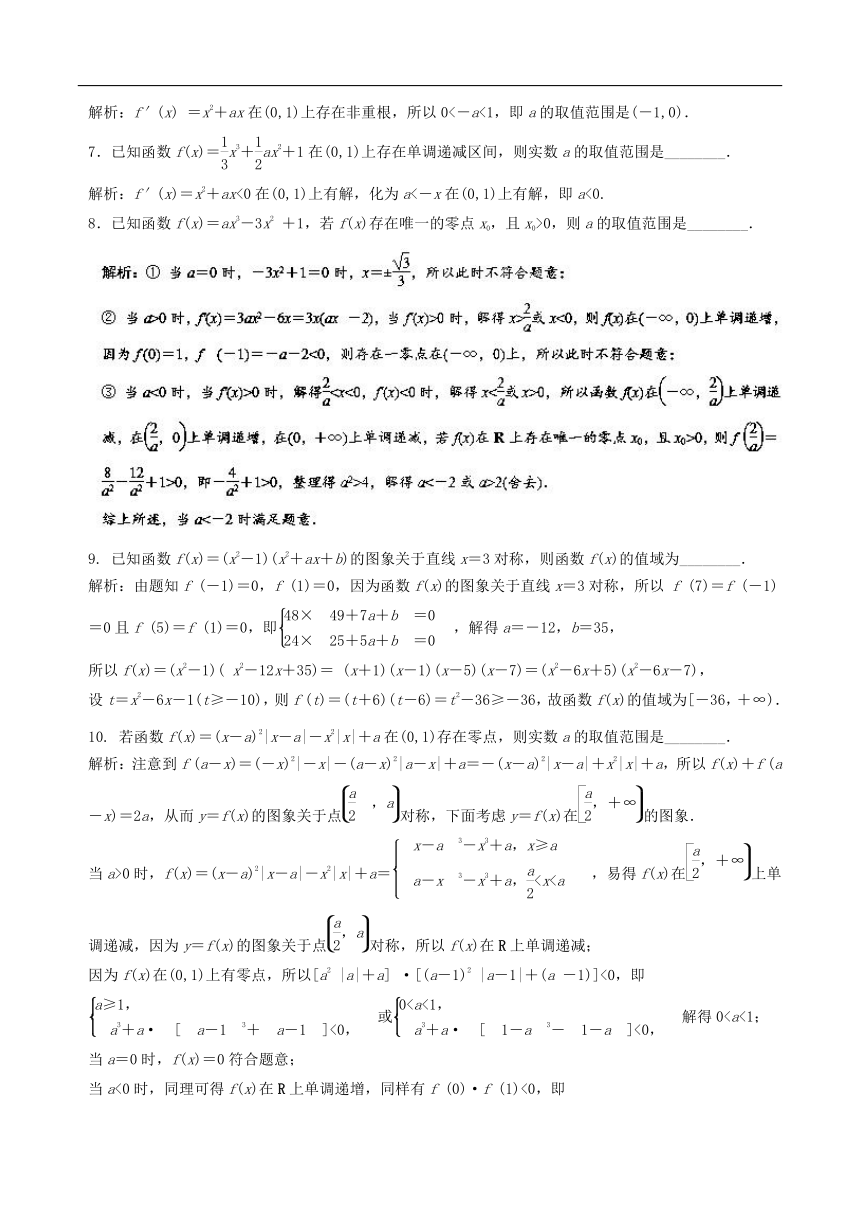 解析:f′(x) =x²+ax在(0,1)上存在非重根，所以0<-a<1，即a的取值范围是(-1,0).
7．已知函数f(x)=1/3x³+1/2ax²+1在(0,1)上存在单调递减区间，则实数a的取值范围是________.
解析:f′(x)=x²+ax<0在(0,1)上有解，化为a<-x在(0,1)上有解，即a<0.
8．已知函数f(x)=ax³-3x² +1，若f(x)存在唯一的零点x₀，且x₀>0，则a的取值范围是________.
解析：① 当a=0时，-3x²+1=0时，x=±√3/3，所以此时不符合题意；
② 当a>0时，f′(x)=3ax²-6x=3x(ax -2)，当f′(x)>0时，解得x>2/a或x<0，则f(x)在(-∞，0)上单调递增，
因为f(0)=1，f (-1)=-a-2<0，则存在一零点在(-∞，0)上，所以此时不符合题意；
③ 当a<0时，当f′(x)>0时，解得2/a<x<0，f′(x)<0时，解得x<2/a或x>0，所以函数f(x)在(-∞，2/a)上单调递
减，在(2/a，0)上单调递增，在(0，+∞)上单调递减，若f(x)在R上存在唯一的零点x₀，且x₀>0，则f(2/a)=
8/a²-12/a²+1>0，即-4/a²+1>0，整理得a²>4，解得a<-2或a>2(舍去).
综上所述，当a<-2时满足题意.
9. 已知函数f(x)=(x²-1)(x²+ax+b)的图象关于直线x=3对称，则函数f(x)的值域为________.
解析:由题知f (-1)=0，f (1)=0，因为函数f(x)的图象关于直线x=3对称，所以 f (7)=f (-1)
=0且f (5)=f (1)=0，即{48× 49+7a+b =0 24× 25+5a+b =0 ，解得a=-12，b=35，
所以f(x)=(x²-1)( x²-12x+35)= (x+1)(x-1)(x-5)(x-7)=(x²-6x+5)(x²-6x-7)，
设t=x²-6x-1(t≥-10)，则f(t)=(t+6)(t-6)=t²-36≥-36，故函数f(x)的值域为[-36，+∞).
10. 若函数f(x)=(x-a)²|x-a|-x²|x|+a在(0,1)存在零点，则实数a的取值范围是________.
解析:注意到f(a-x)=(-x)²|-x|-(a-x)²|a-x|+a=-(x-a)²|x-a|+x²|x|+a，所以f(x)+f(a
-x)=2a，从而y=f(x)的图象关于点(a/2 ，a)对称，下面考虑y=f(x)在[a/2，+∞)的图象.
当a>0时，f(x)=(x-a)²|x-a|-x²|x|+a={ x-a ³-x³+a，x≥a a-x ³-x³+a，a/2<x<a ，易得f(x)在[a/2，+∞)上单
调递减，因为y=f(x)的图象关于点(a/2，a)对称，所以f(x)在R上单调递减；
因为f(x)在(0,1)上有零点，所以[a² |a|+a] ·[(a-1)² |a-1|+(a -1)]<0，即
{a≥1， a³+a· [ a-1 ³+ a-1 ]<0， 或{0<a<1， a³+a· [ 1-a ³- 1-a ]<0， 解得0<a<1；
当a=0时，f(x)=0符合题意；
当a<0时，同理可得f(x)在R上单调递增，同样有f (0)·f (1)<0，即